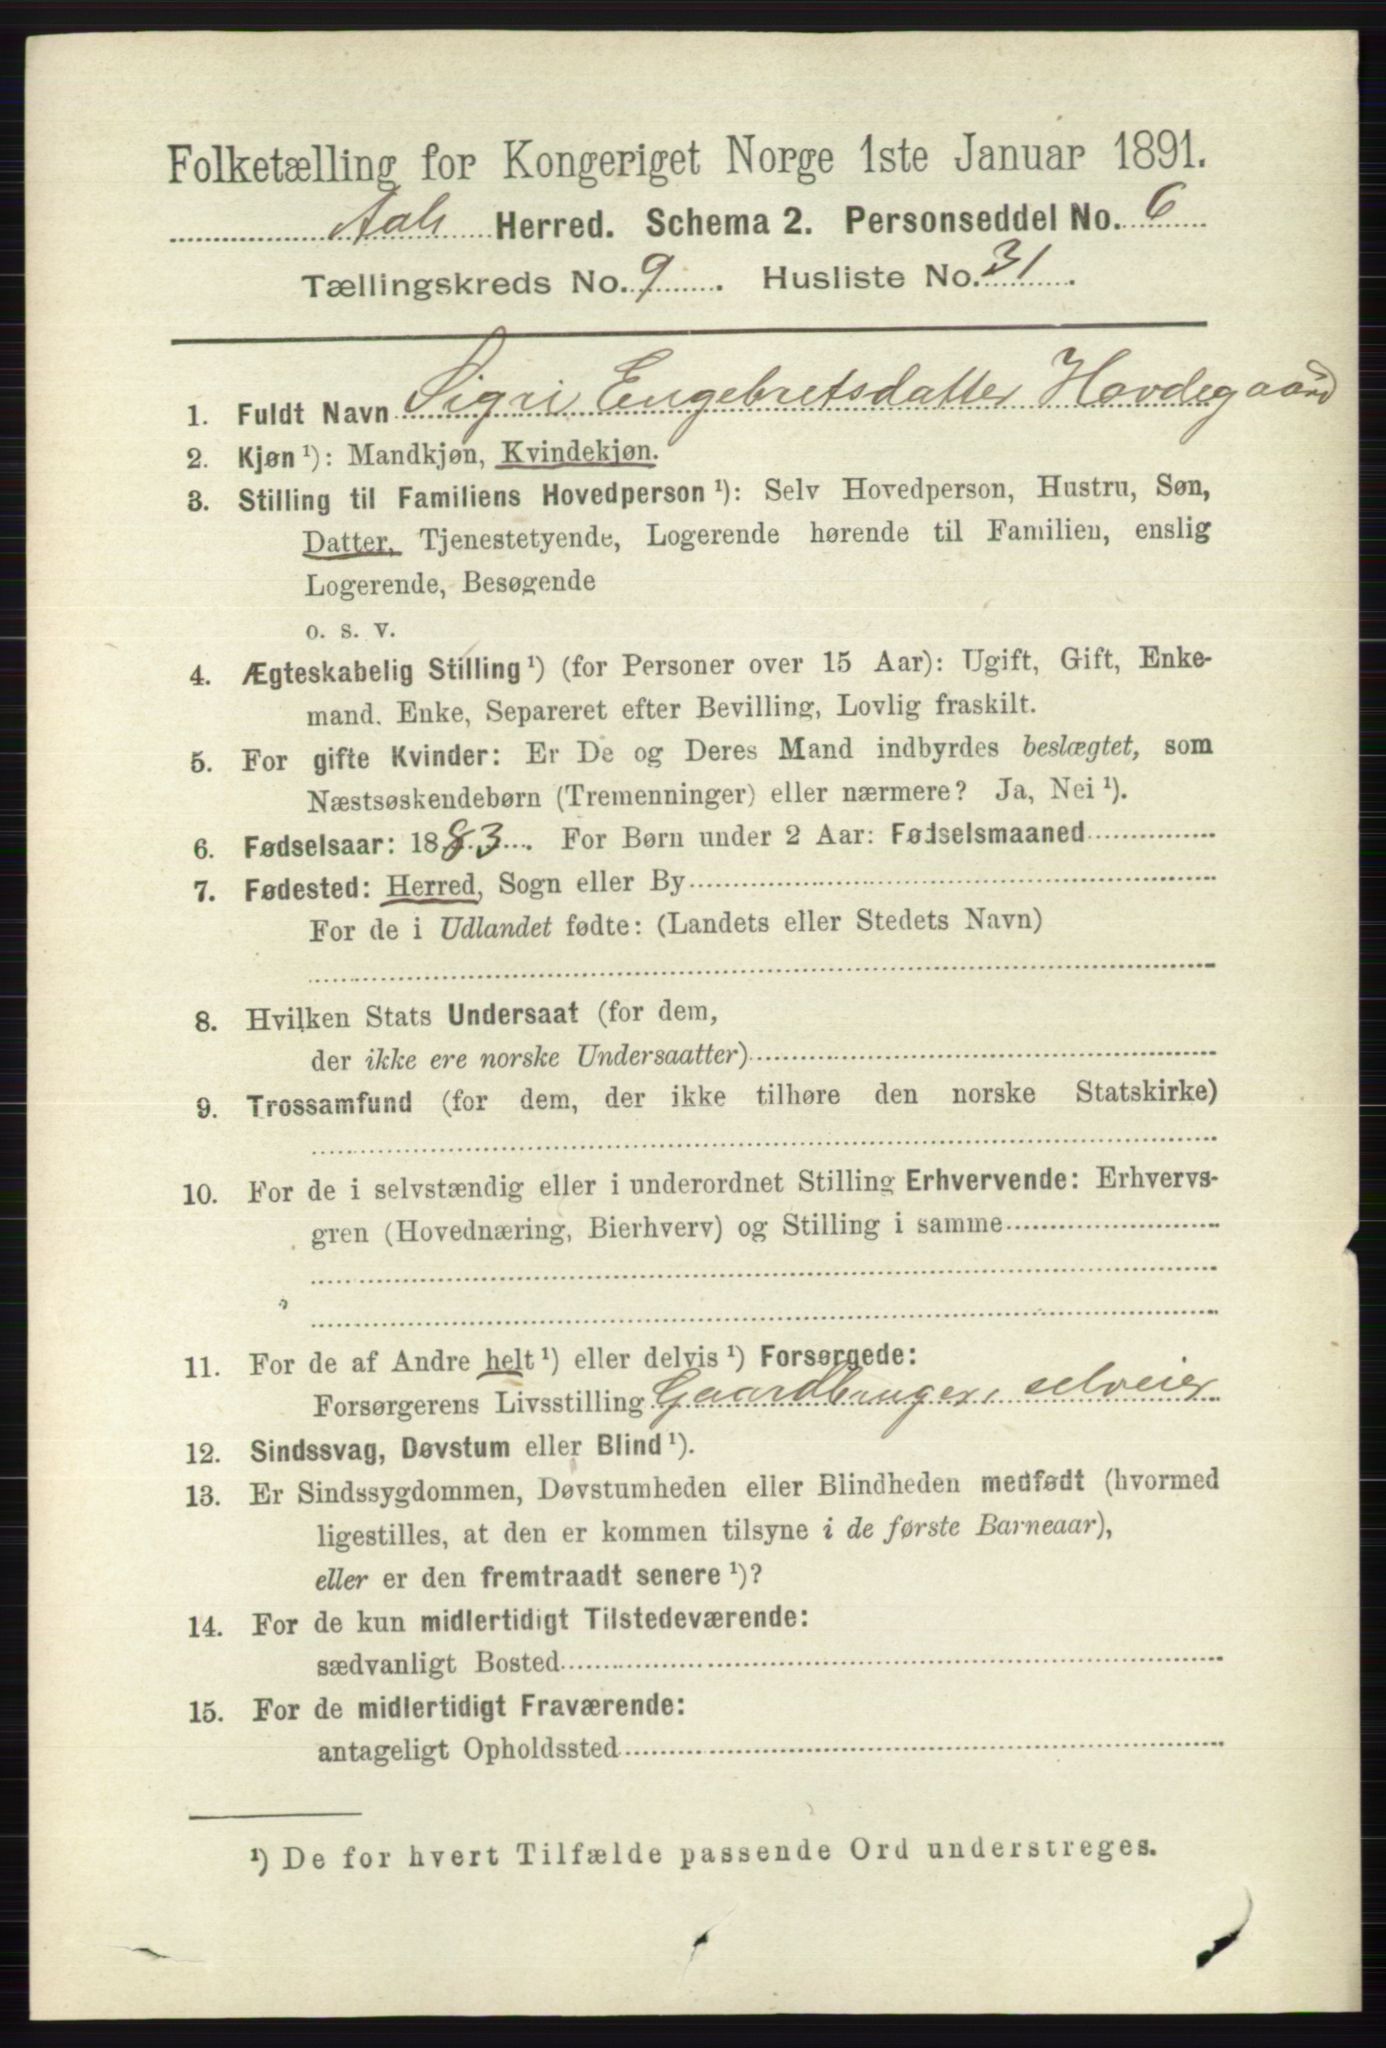 Folketælling for Kongeriget Norge 1ste Januar 1891.
Aals Herred. Schema 2. Personseddel No. 6
Tællingskreds No. 9. Husliste No. 31.
1. Fuldt Navn Sigri Engebretsdatter Hovdegaard
2. Kjøn ¹): Mandkjøn, Kvindekjøn.
3. Stilling til Familiens Hovedperson ¹): Selv Hovedperson, Hustru, Søn,
Datter, Tjenestetyende, Logerende hørende til Familien, enslig
Logerende, Besøgende
o. s. v.
4. Ægteskabelig Stilling ¹) (for Personer over 15 Aar): Ugift, Gift, Enke-
mand. Enke, Separeret efter Bevilling, Lovlig fraskilt.
5. For gifte Kvinder: Er De og Deres Mand indbyrdes beslægtet, som
Næstsøskendebørn (Tremenninger) eller nærmere? Ja, Nei ¹).
6. Fødselsaar: 1883. For Børn under 2 Aar: Fødselsmaaned
7. Fødested: Herred, Sogn eller By
For de i Udlandet fødte: (Landets eller Stedets Navn)
8. Hvilken Stats Undersaat (for dem,
der ikke ere norske Undersaatter)
9. Trossamfund (for dem, der ikke tilhøre den norske Statskirke)
10. For de i selvstændig eller i underordnet Stilling Erhvervende: Erhvervs-
gren (Hovednæring, Bierhverv) og Stilling i samme
11. For de af Andre helt ¹) eller delvis ¹) Forsørgede:
Forsørgerens Livsstilling Gaardbruger, selveier
12. Sindssvag, Døvstum eller Blind ¹).
13. Er Sindssygdommen, Døvstumheden eller Blindheden medfødt (hvormed
ligestilles, at den er kommen tilsyne i de første Barneaar),
eller er den fremtraadt senere ¹)?
14. For de kun midlertidigt Tilstedeværende:
sædvanligt Bosted
15. For de midlertidigt Fraværende:
antageligt Opholdssted
¹) De for hvert Tilfælde passende Ord understreges.